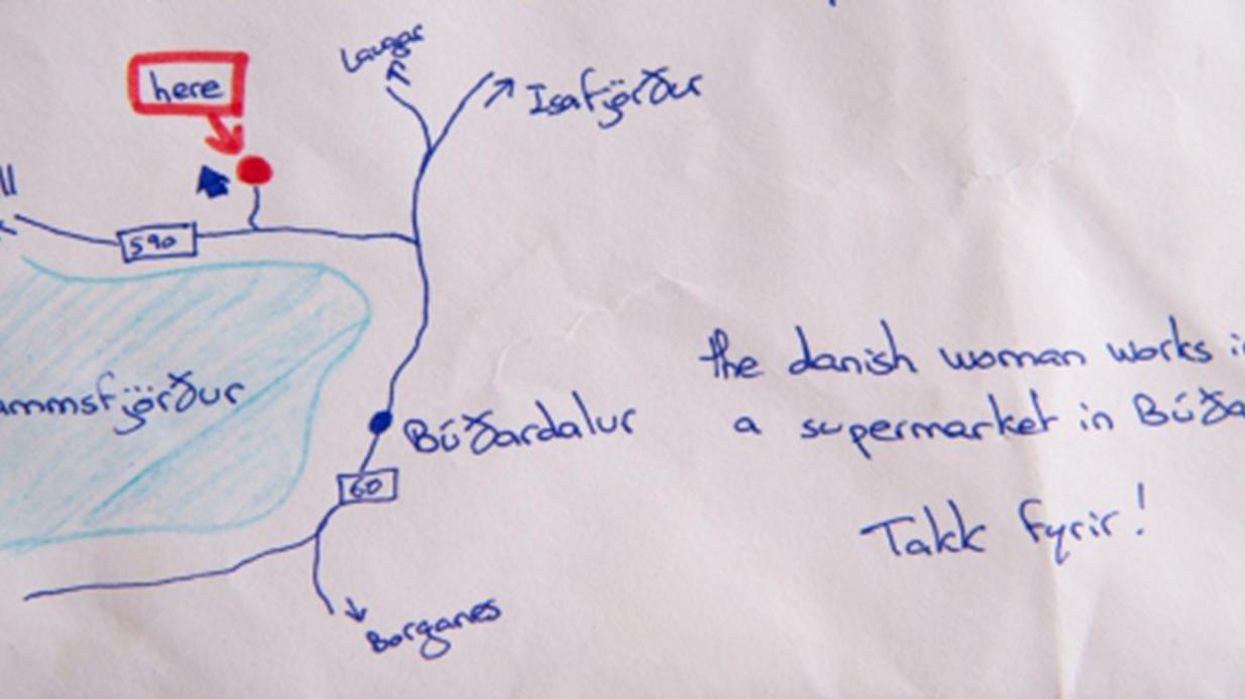 Laugar
here
Isafjörður
590
ammsfjörður
Búðardalur
60
Borganes
the danish woman works
a supermarket in
Takk fyrir!